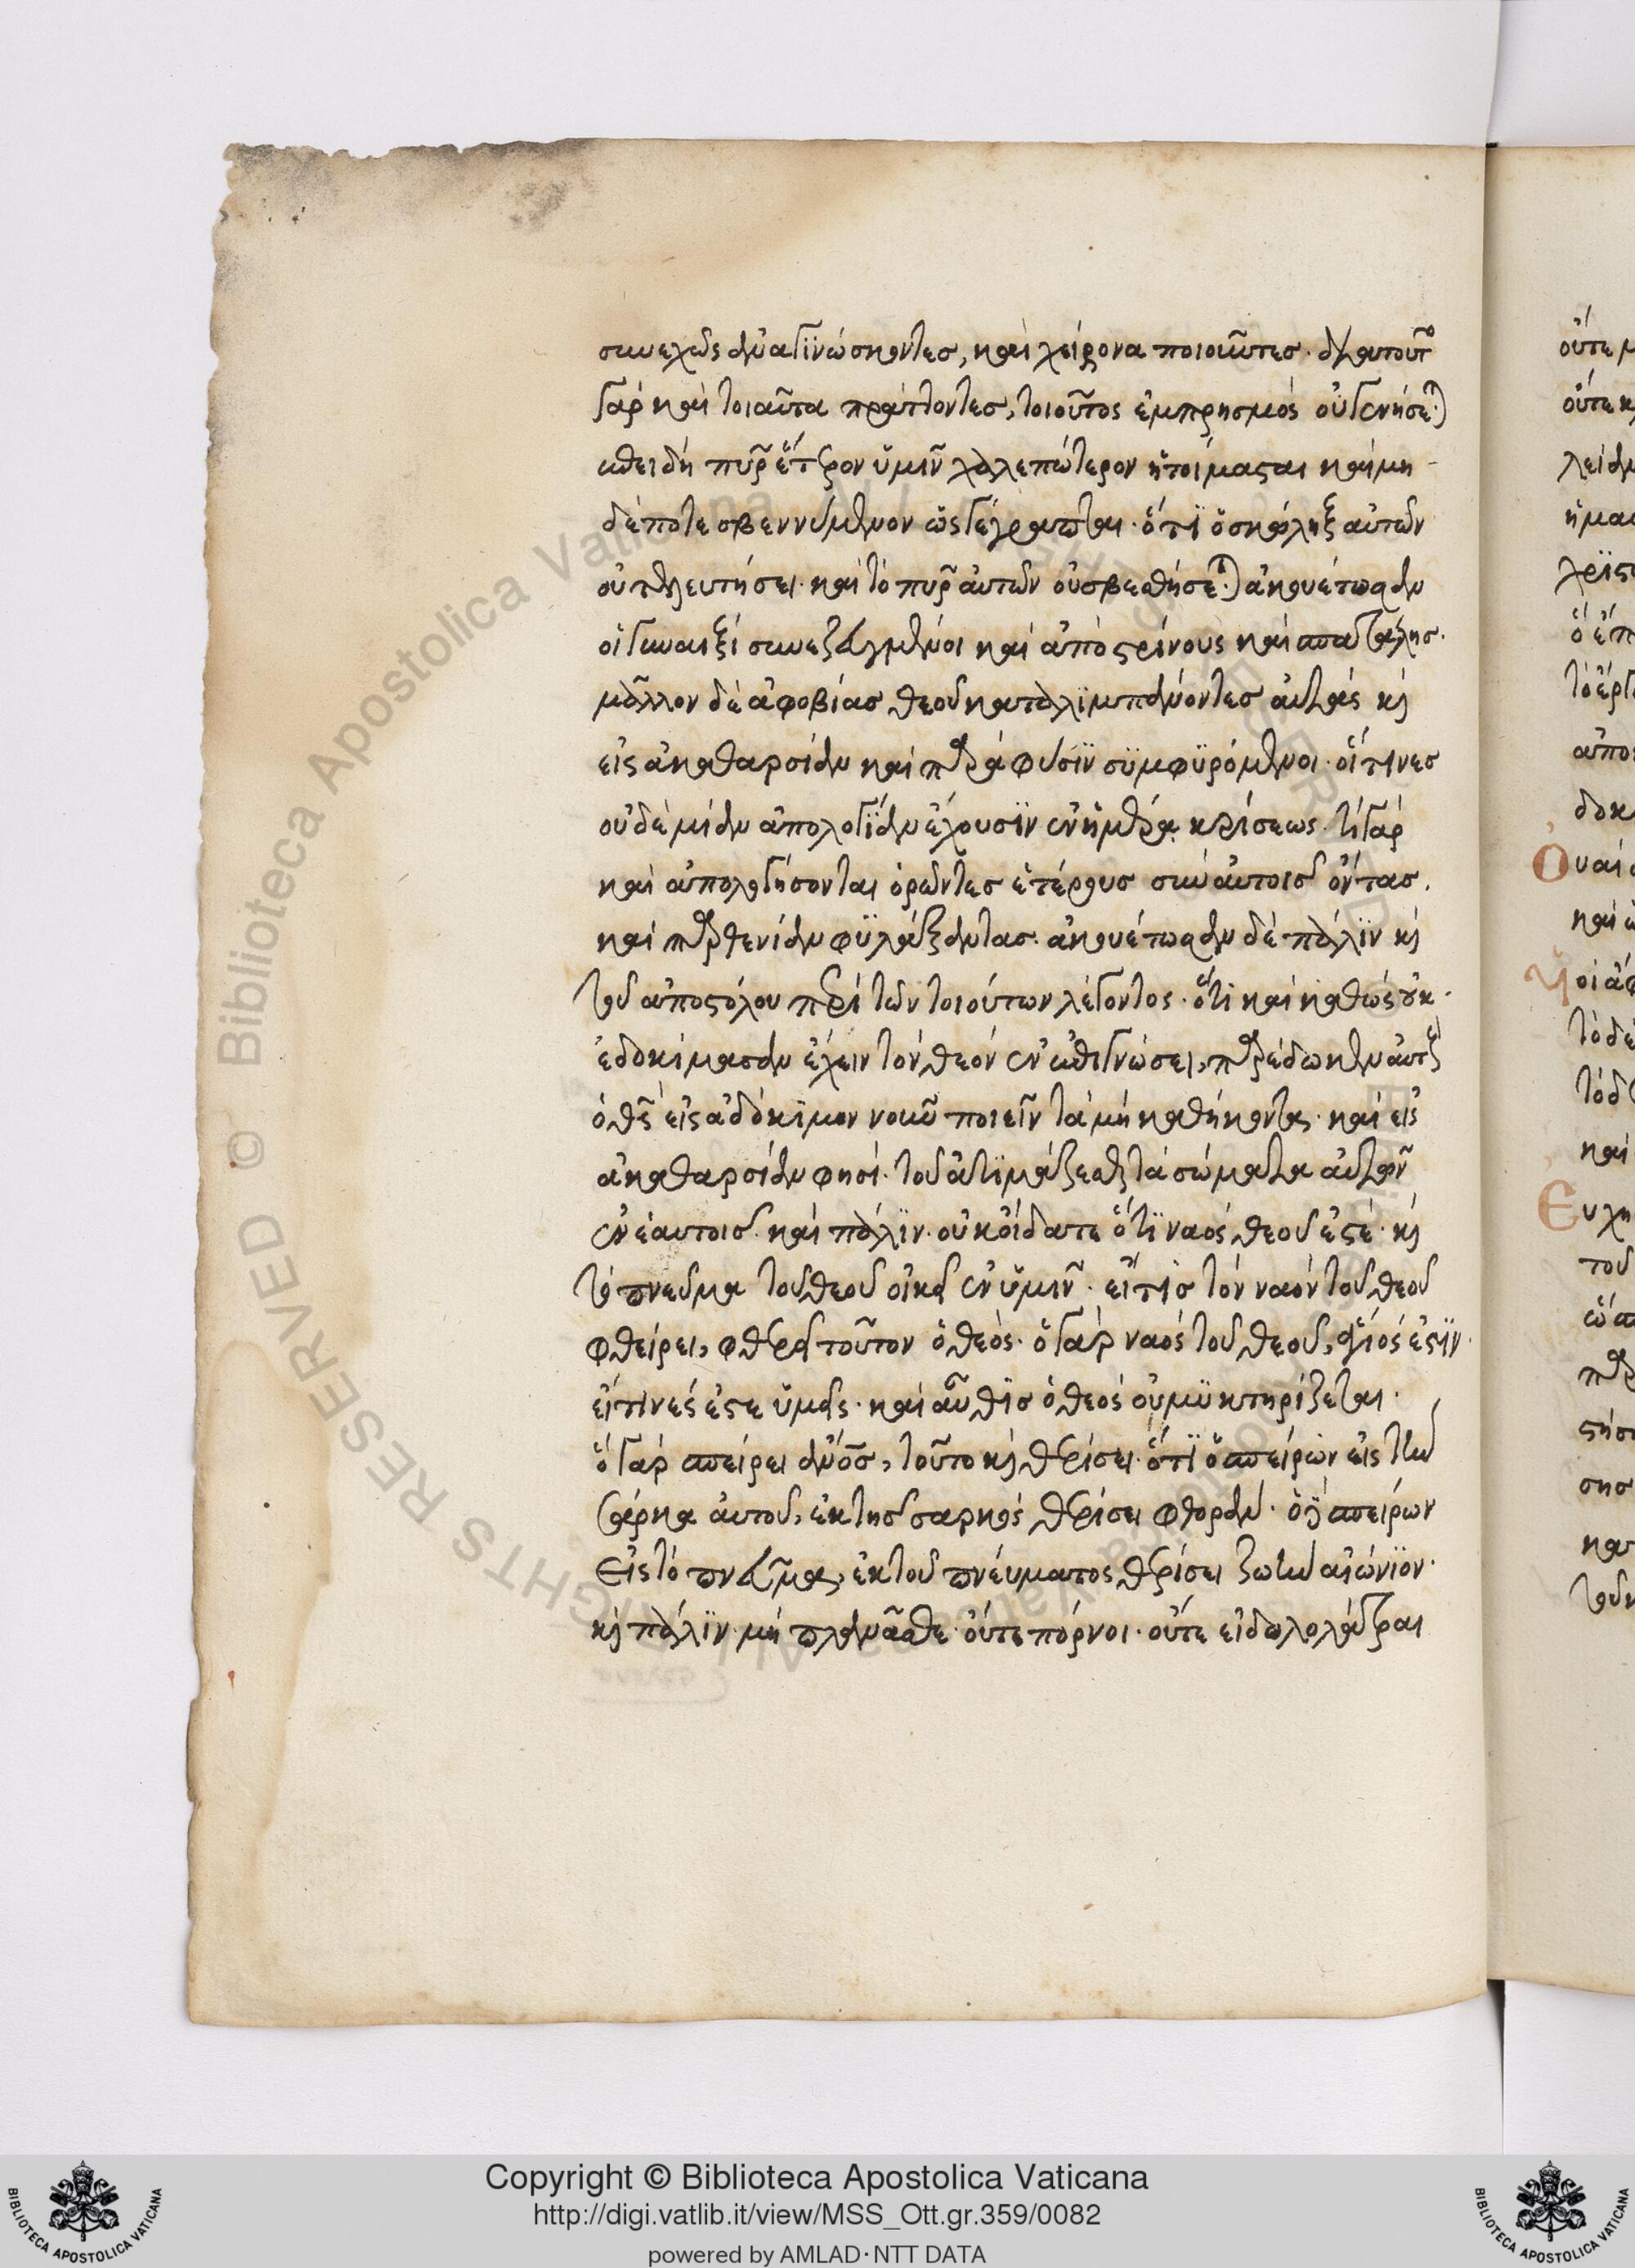 συνεχῶς ἀναγϊνώσκοντες, καὶ χείρονα ποιοῦντες. διατοῦτο
γὰρ καὶ τοιαῦτα πράττοντες, τοιοῦτος ἐμπρησμὸς οὐ γενήσεται
ἐπειδὴ πῦρ ἕτερον ὑμῖν χαλεπώτερον ἡτοίμασται καὶ μη-
δέποτε σβεννύμενον ὡς γέγραπται. ὅτϊ ὁ σκώληξ αὐτῶν
οὐ τελευτήσει. καὶ τὸ πῦρ αὐτῶν οὐ σβεσθήσεται ἀκουέτωσαν
οἱ γυναιξὶ συνεζευγμένοι καὶ ἀπὸ στρίνους καὶ σπατάλης.
μᾶλλον δὲ ἀφοβίας θεοῦ καταλϊμπάνοντες αὐτὰς κὶ
εἰς ἀκαθαρσίαν καὶ παράφυσϊν συμφϋρόμενοι. οἵτινες
οὐδὲ μίαν ἀπολογϊαν ἔχουσϊν ἐν ἡμέρᾳ κρίσεως. τί γὰρ
καὶ ἀπολογήσονται ὁρῶντες ἑτέρους σὺν αὐτοῖς ὄντας.
καὶ παρθενίαν φϋλάξαντας. ἀκουέτωσαν δὲ πάλϊν κὶ
τοῦ ἀποστόλου περὶ τῶν τοιούτων λέγοντος. ὅτϊ καὶ καθὼς οὐκ
ἐδοκίμασαν ἔχειν τὸν θεὸν ἐν ἐπιγνώσει, παρέδωκεν αὐτοὺς
ὁ θεὸς εἰς ἀδόκϊμον νοῦν ποιεῖν τὰ μὴ καθήκοντα. καὶ εἰς
ἀκαθαρσίαν φησί. τοῦ ἀτϊμάζεσθαι τὰ σώματα αὐτῶν
ἐν ἑαυτοῖς. καὶ πάλϊν. οὐκ οἴδατε ὅτϊ ναὸς θεοῦ ἐστέ. κὶ
τὸ πνεῦμα τοῦ θεοῦ οἰκεῖ ἐν ὑμῖν. εἴτις τὸν ναὸν τοῦ θεοῦ
φθείρει, φθερεῖ τοῦτον ὁ θεός. ὁ γὰρ ναὸς τοῦ θεοῦ, ἅγιός ἐστϊν.
εἴτινές ἐστε ὑμεῖς. καὶ αὖθϊς ὁ θεὸς οὐ μϋκτηρίζεται.
ὃ γὰρ σπείρει ἄνος, τοῦτο κὶ θερίσει. ὅτϊ ὁ σπείρων εἰς τὴν
σάρκα αὐτοῦ, ἐκ τῆς σαρκὸς θερίσει φθοράν. ὁ δὲ σπείρων
εἰς τὸ πνεῦμα, ἐκ τοῦ πνεύματος θερίσει ζωὴν αἰώνϊον.
κὶ πάλϊν. μὴ πλανᾶσθε. οὔτε πόρνοι. οὔτε εἰδωλολάτραι
Copyright © Biblioteca Apostolica Vaticana
http://digi.vatlib.it/view/MSS_Ott.gr.359/0082
powered by AMLAD·NTT DATA